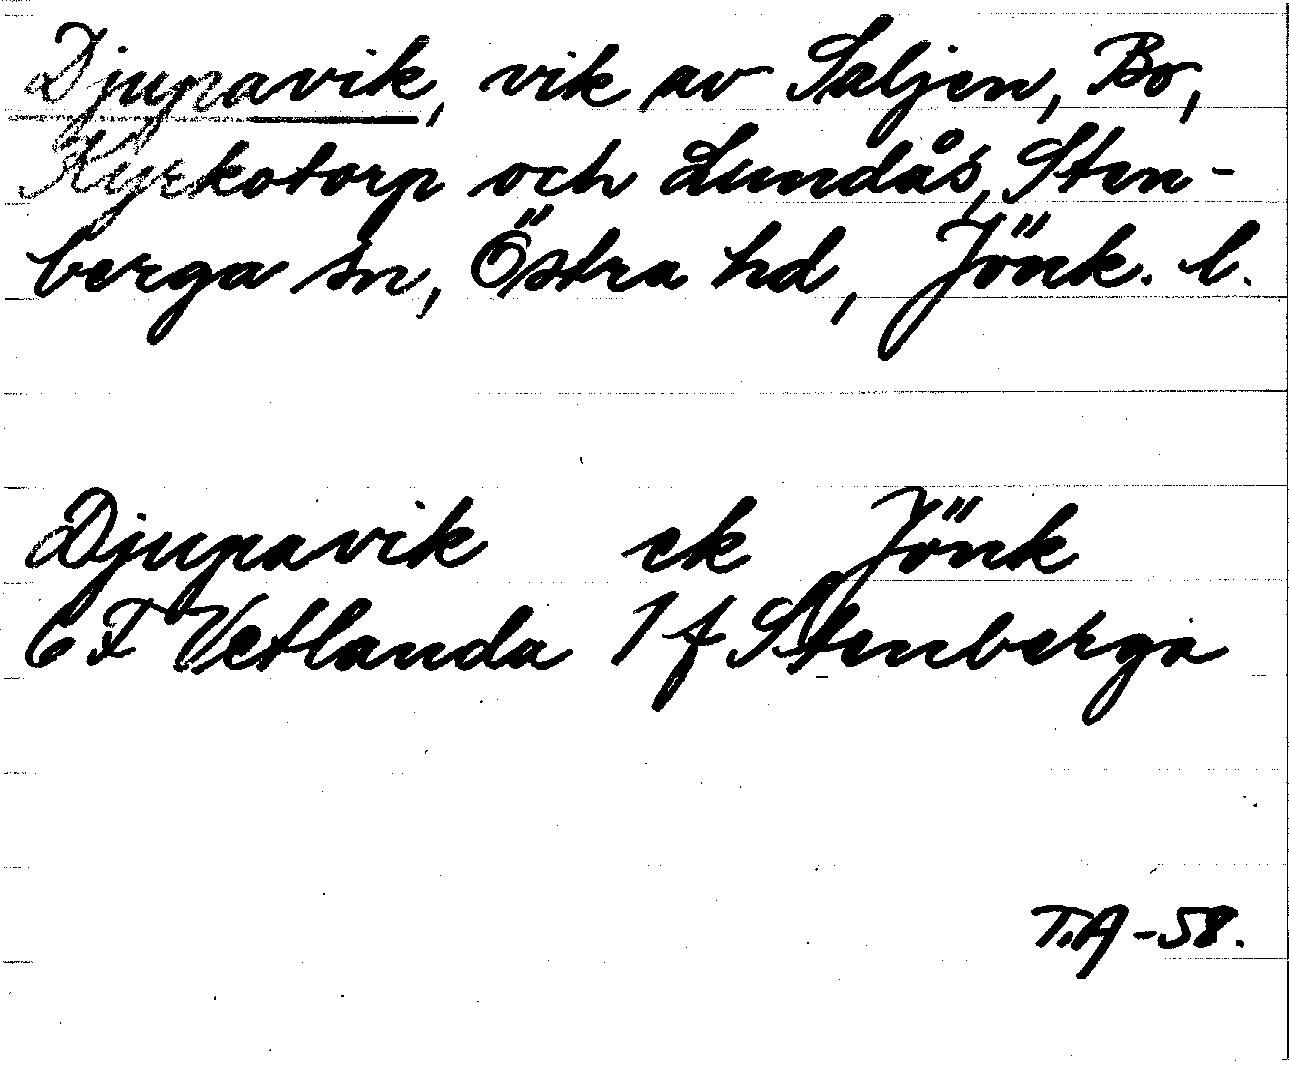 Djupavik, vik av Saljen, Bo,
Kyrkotorp och Lundås, Sten-
berga sn, Östra hd, Jönk. l.
Djupavik ek Jönk
6 F Vetlanda 1 f Stenberga
T.A -58.